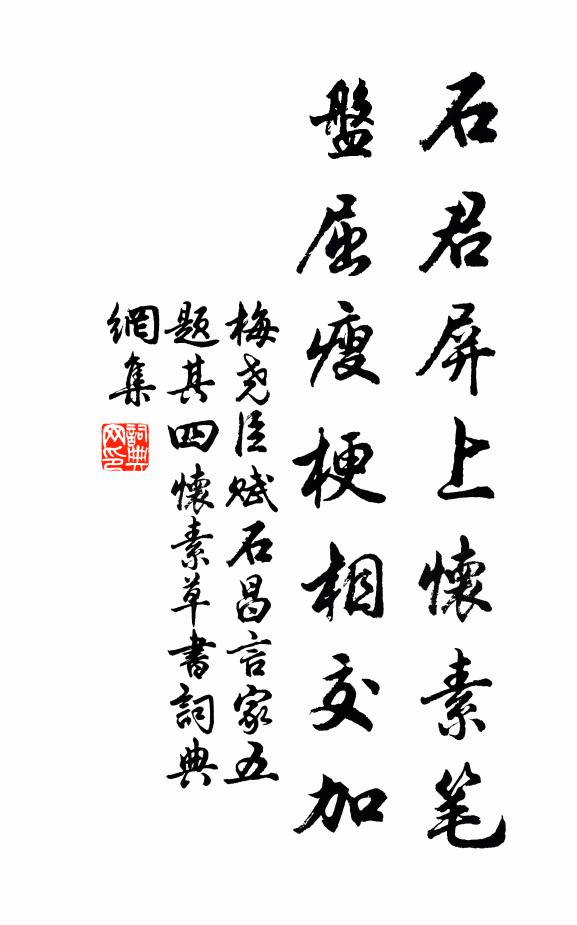 石君屏上懷素笔
盤屈瘦梗相交加
梅堯臣赋石昌言家五
题其四懷素草書詞典
網集
詞典網印